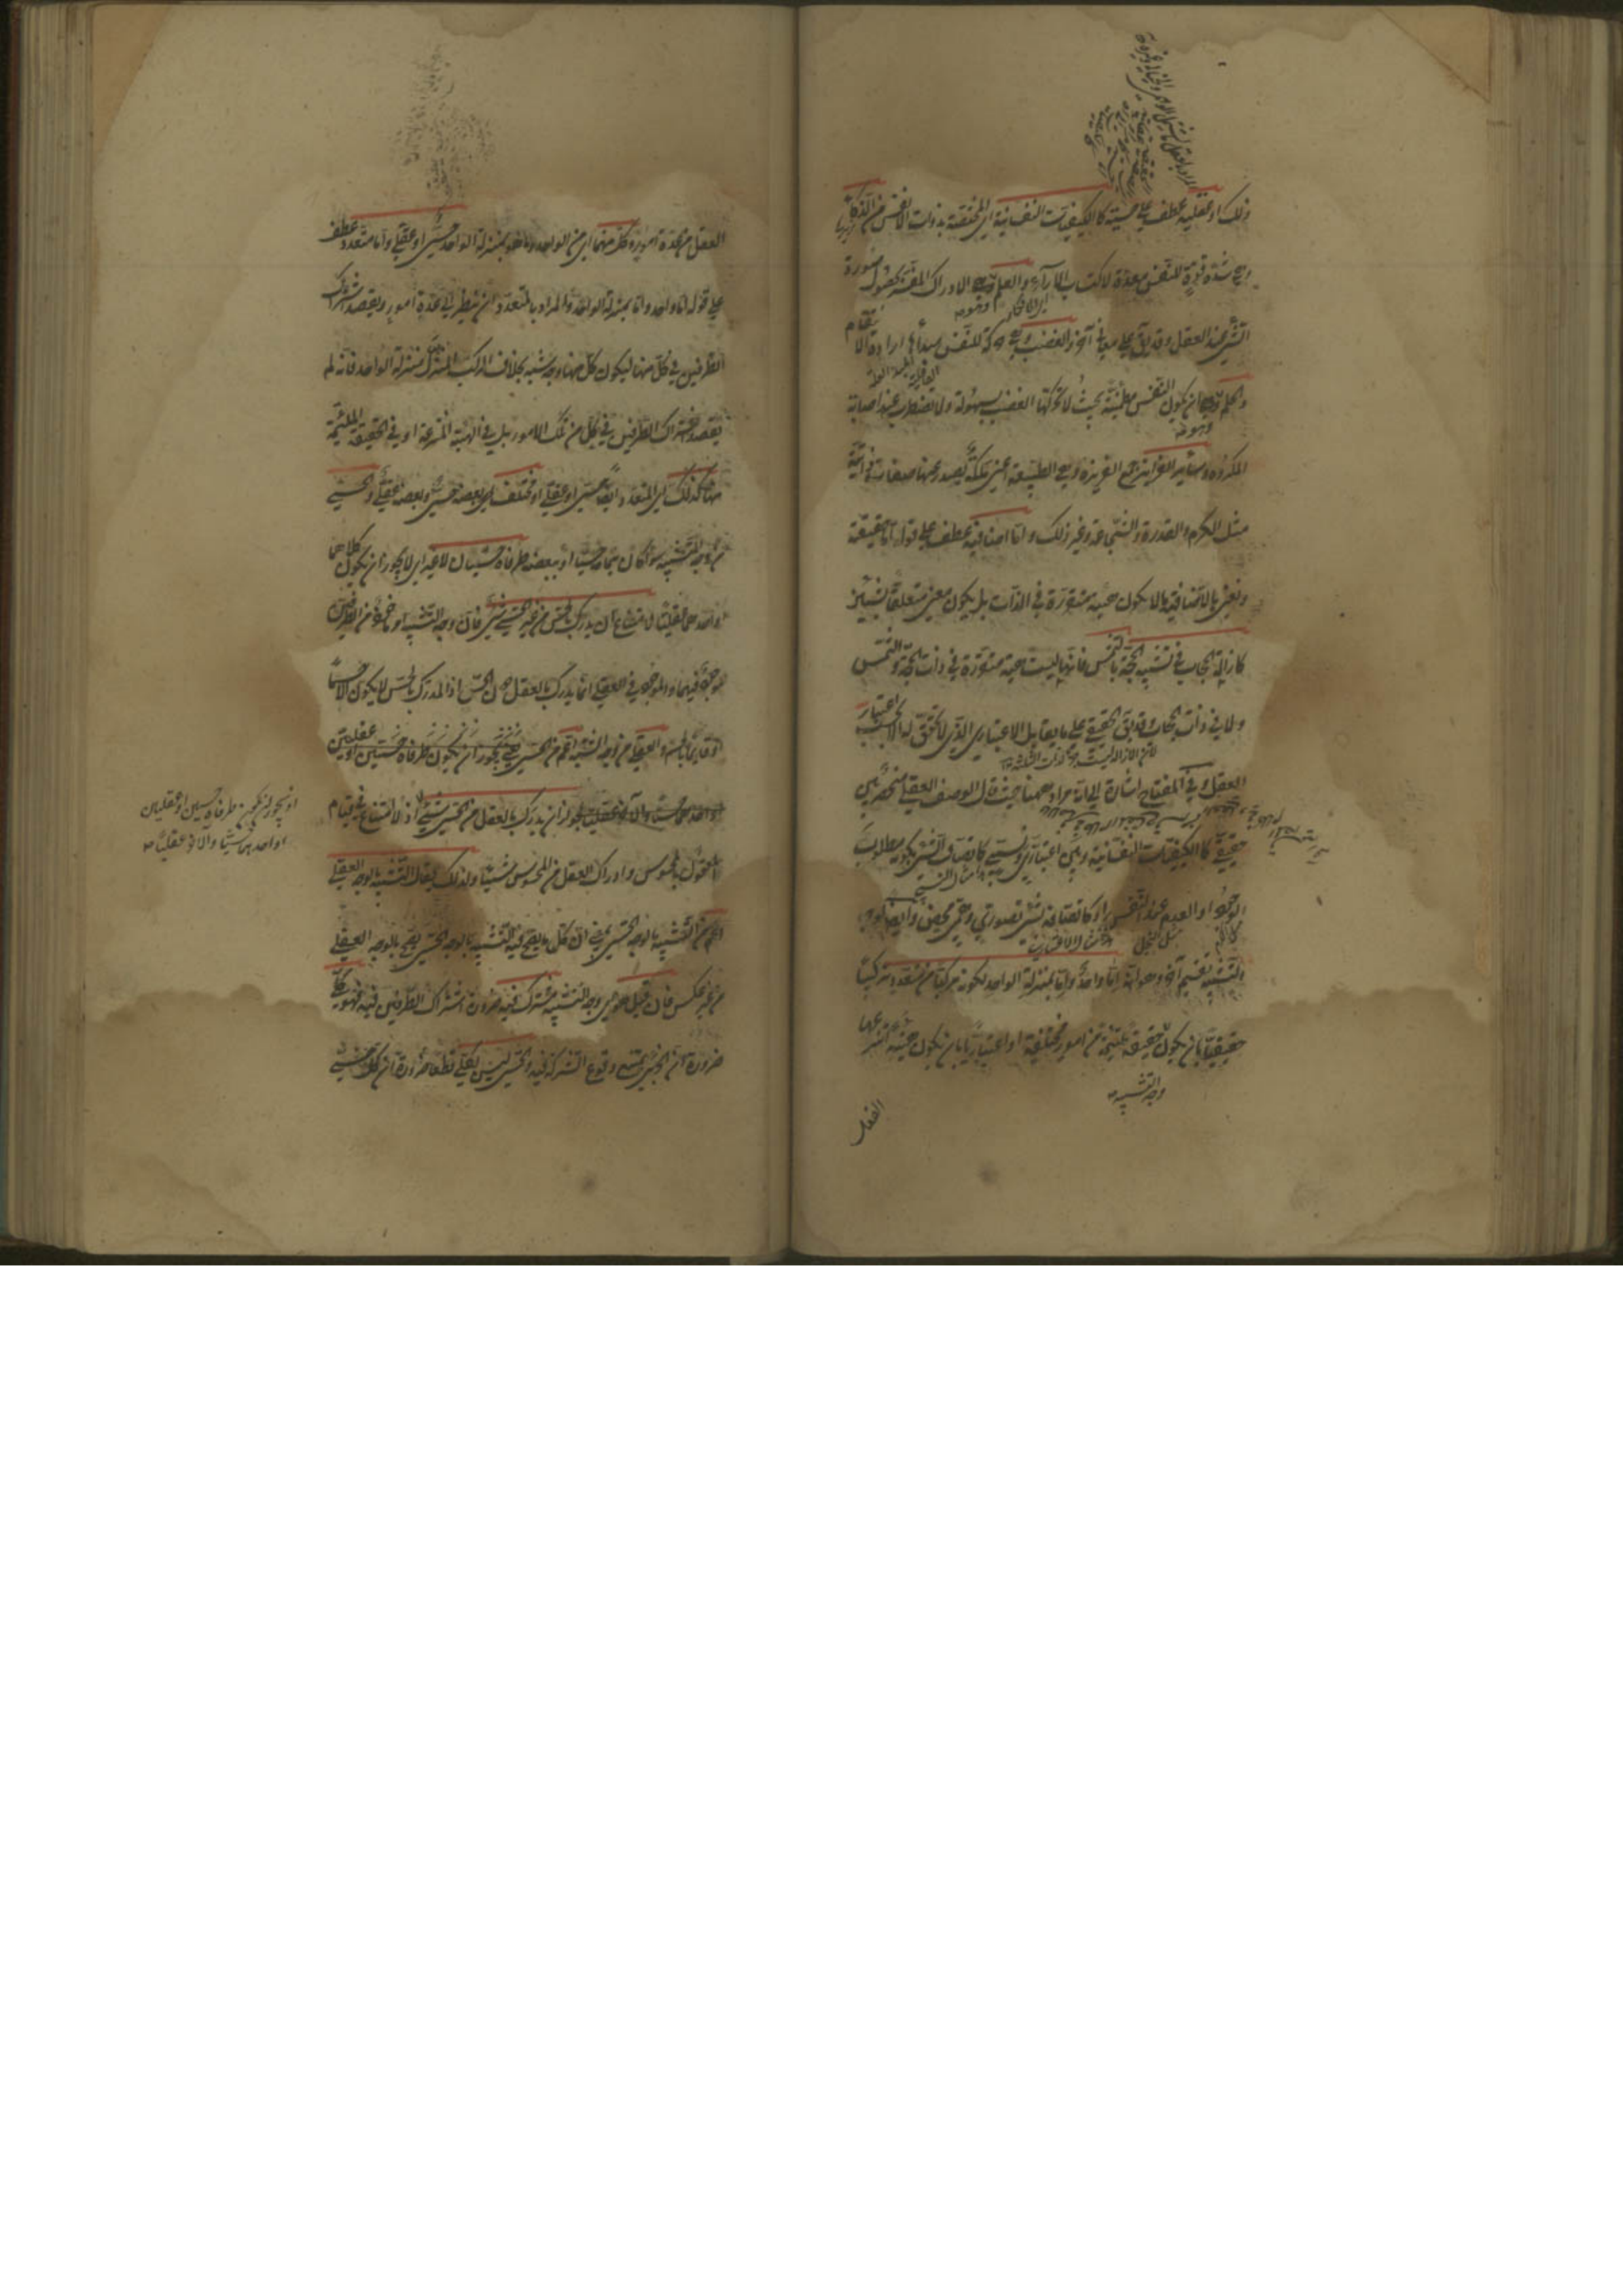 ذلك او عقلية عطف على حسية كالكيفيات النفسانية اي المختصة بذوات الانفس من الذكاء
وهي شدة قوة للنفس معدة لاكتساب الآراء والعلم وهو الادراك المفسر بحصول صورة
الشئ عند العقل وقد يق على معان أخر والغضب وهو حركة للنفس مبدأها ارادة الانتقام
والحلم وهو ان يكون النفس مطمئنة بحيث لا يحركها الغضب بسهولة ولا تضطرب عند اصابة
المكروه وسائر الغرايز جمع الغريزة وهي الطبيعة اعني ملكة يصدر عنها صفات ذاتية
مثل الكرم والقدرة والشجاعة وغير ذلك واما اضافية عطف على قوله اما حقيقية
ونعني بالاضافية ما لا يكون هيئة متقررة في الذات بل يكون معنى متعلقا بشيئين
كازالة الحجاب في تشبيه الحجة بالشمس فانها ليست هيئة متقررة في ذات الحجة والشمس
ولا في ذات الحجاب وقد يق الحقيقي على ما يقابل الاعتباري الذي لا تحقق له الا بحسب اعتبار
العقل وفي المفتاح اشارة الى انه مراد ههنا حيث قال الوصف العقلي منحصر بين
حقيقي كالكيفيات النفسانية وبين اعتباري ونسبي كاتصاف الشئ بكونه مطلوب
الوجود او العدم عند النفس او كاتصافه بشئ تصوري وهمي محض وايضا لوجه
التشبيه تقسيم آخر وهو انه اما واحد واما بمنزلة الواحد لكونه مركبا من متعدد تركيبا
حقيقيا بان يكون حقيقة ملتئمة من امور مختلفة او اعتباريا بان يكون هيئة انتزعها
وجه التشبيه
العقل
العقل من عدة امور وكل منهما اي من الواحد وما هو بمنزلة الواحد حسي او عقلي واما متعدد عطف
على قوله اما واحد واما بمنزلة الواحد والمراد بالمتعدد ان ينظر الى عدة امور ويقصد اشتراك
الطرفين في كل منها ليكون كل منها وجه شبه بخلاف المركب المنزل منزلة الواحد فانه لم
يقصد اشتراك الطرفين في كل من تلك الامور بل في الهيئة المنتزعة او في الحقيقة الملتئمة
منها كذلك اي المتعدد ايضا حسي او عقلي او مختلف اي بعضه حسي وبعضه عقلي والحسي
من وجه التشبيه سواء كان بتمامه حسيا او ببعضه طرفاه حسيان لا غير اي لا يجوز ان يكون كلاهما
او احدهما عقليا لامتناع ان يدرك بالحس من غير الحسي شئ فان وجه التشبيه امر مأخوذ من الطرفين
موجود فيهما والموجود في العقلي انما يدرك بالعقل دون الحس اذ المدرك بالحس لا يكون الا جسما
او قائما بالجسم والعقلي من وجه التشبيه اعم من الحسي يعني يجوز ان يكون طرفاه حسيين او عقليين
او احدهما حسيا والآخر عقليا لجواز ان يدرك بالعقل من الحسي شئ اذ لا امتناع في قيام
المعقول بالمحسوس وادراك العقل من المحسوس شيئا ولذلك يقال التشبيه بالوجه العقلي
اعم من التشبيه بالوجه الحسي بمعنى ان كل ما يصح فيه التشبيه بالوجه الحسي يصح بالوجه العقلي
من غير عكس فان قيل هو اي وجه التشبيه مشترك فيه ضرورة اشتراك الطرفين فيه فهو كلي
ضرورة ان الجزئي يمتنع وقوع الشركة فيه والحسي ليس بكلي قطعا ضرورة ان كل حسي
او يجوز ان يكون طرفاه حسيين او عقليين
او احدهما حسيا والآخر عقليا